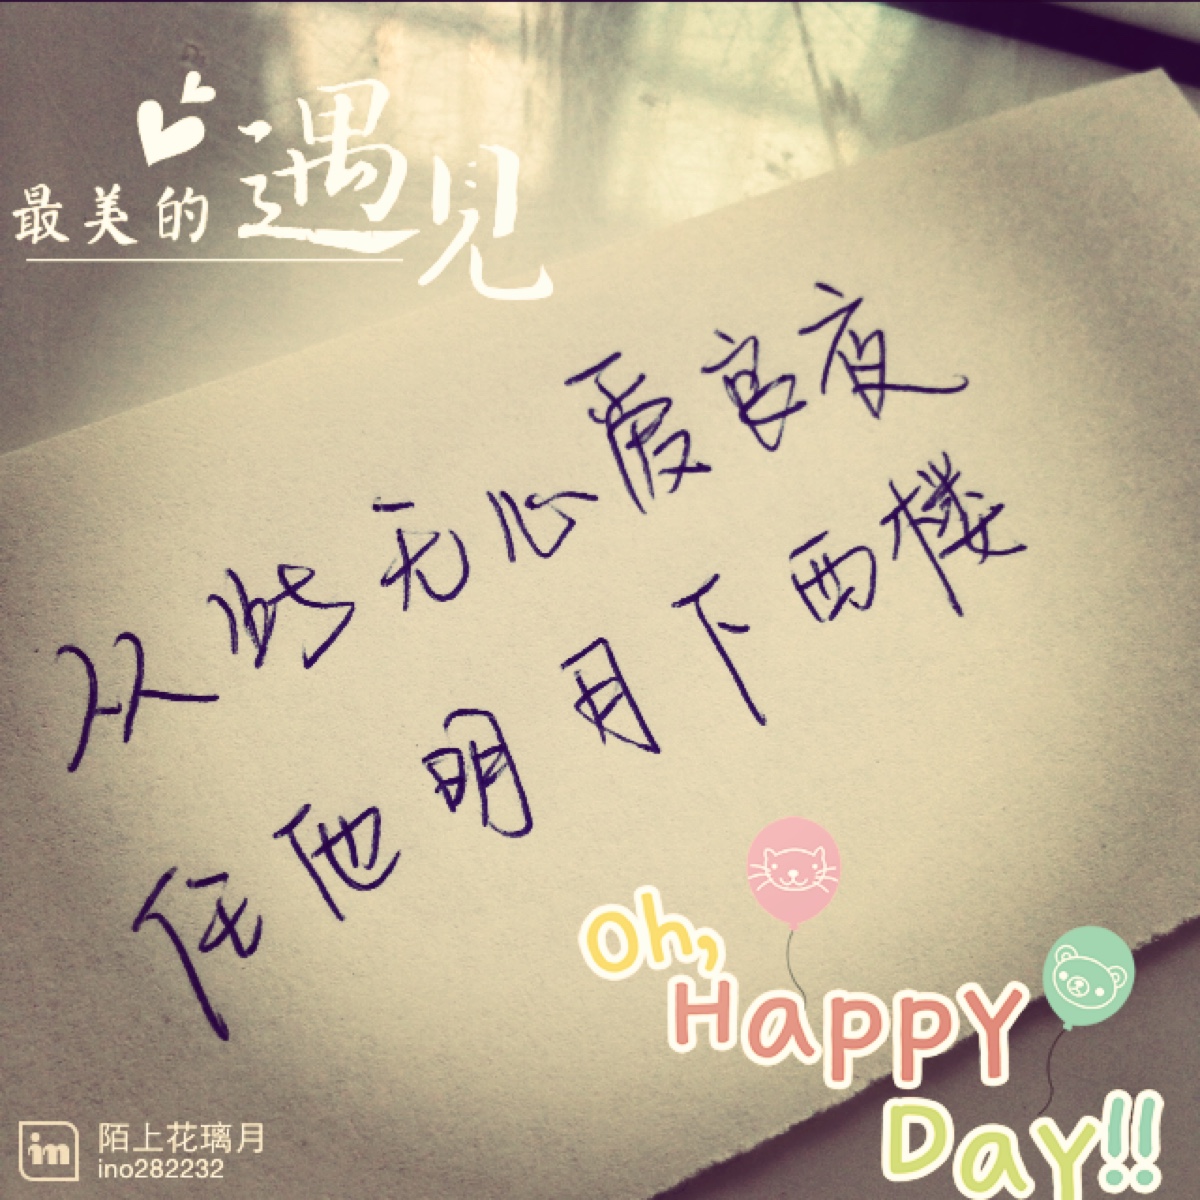 最美的遇见
从此无心爱良夜
任他明月下西楼
Oh,
Happy
Day!!
in
陌上花璃月
ino282232